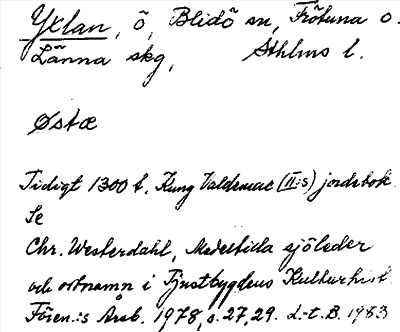 Yxlan, ö, Blidö sn, Frötuna o.
Länna skg, Sthlms l.
Østæ
Tidigt 1300 t. Kung Valdemar (II:s) jordebok
Se
Chr. Westerdahl, Medeltida sjöleder
och ortnamn i Tjustbygdens Kulturhist.
Fören.:s Årsb. 1978, s. 27, 29. L-t. B. 1983